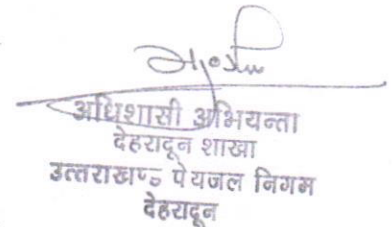 अधिशासी अभियन्ता
देहरादून शाखा
उत्तराखण्ड पेयजल निगम
देहरादून